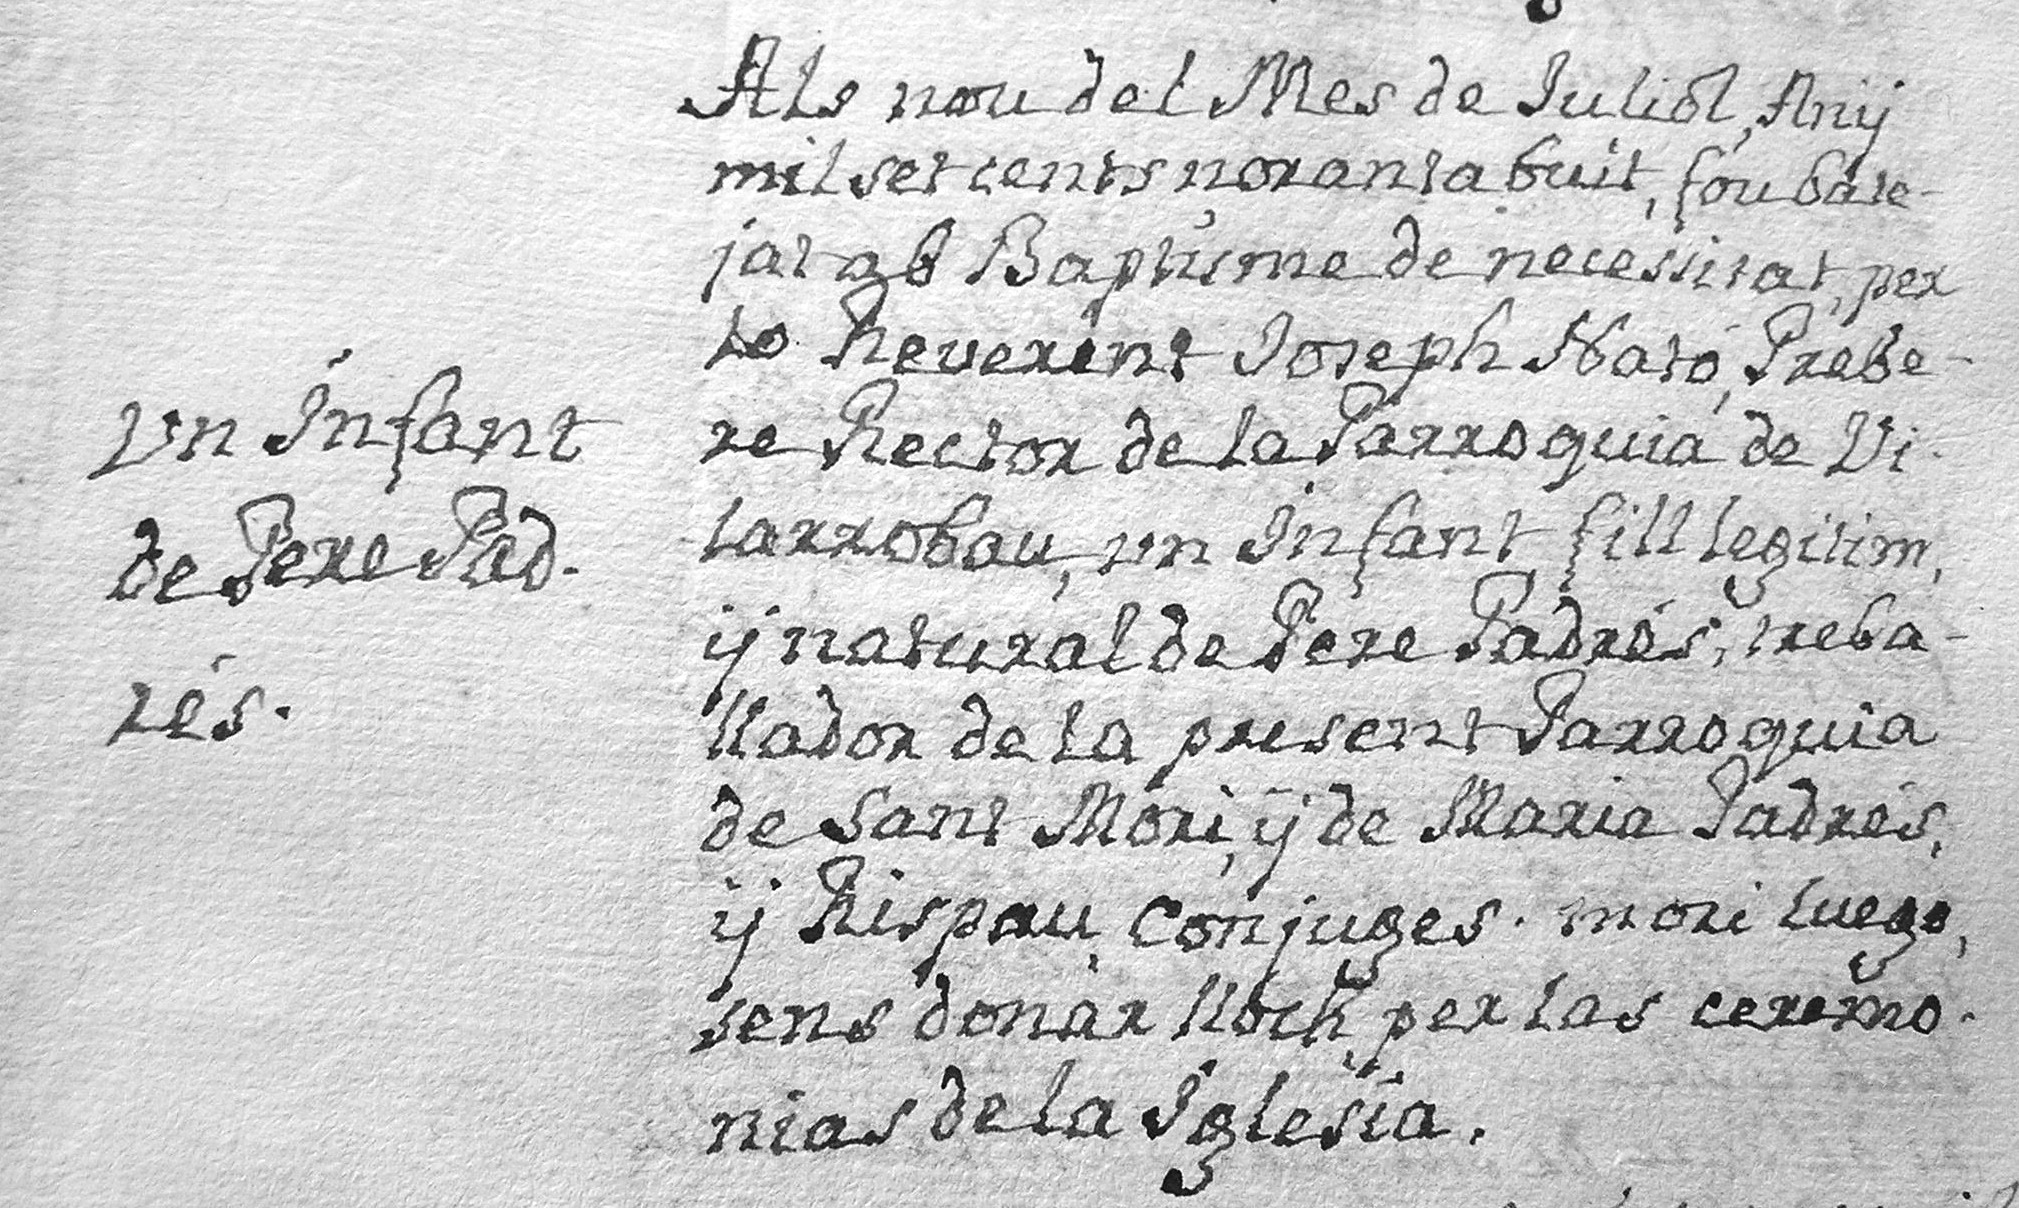 Un Infant
de Pere Pad-
rés.
Als nou del Mes de Juliol, Anÿ
mil setcents noranta buit, fou bate-
jat ab Baptisme de necessitat, per
lo Reverent Joseph Nató, Prebe-
re Rector de la Parroquia de Vi-
larrobau, un Infant, fill legitim,
ÿ natural de Pere Padrés, treba-
llador de la present Parroquia
de Sant Mori, ÿ de Maria Padrés,
ÿ Rispau, Conjuges. mori luego,
sens donar lloch, per las ceremo-
nias de la Iglesia.